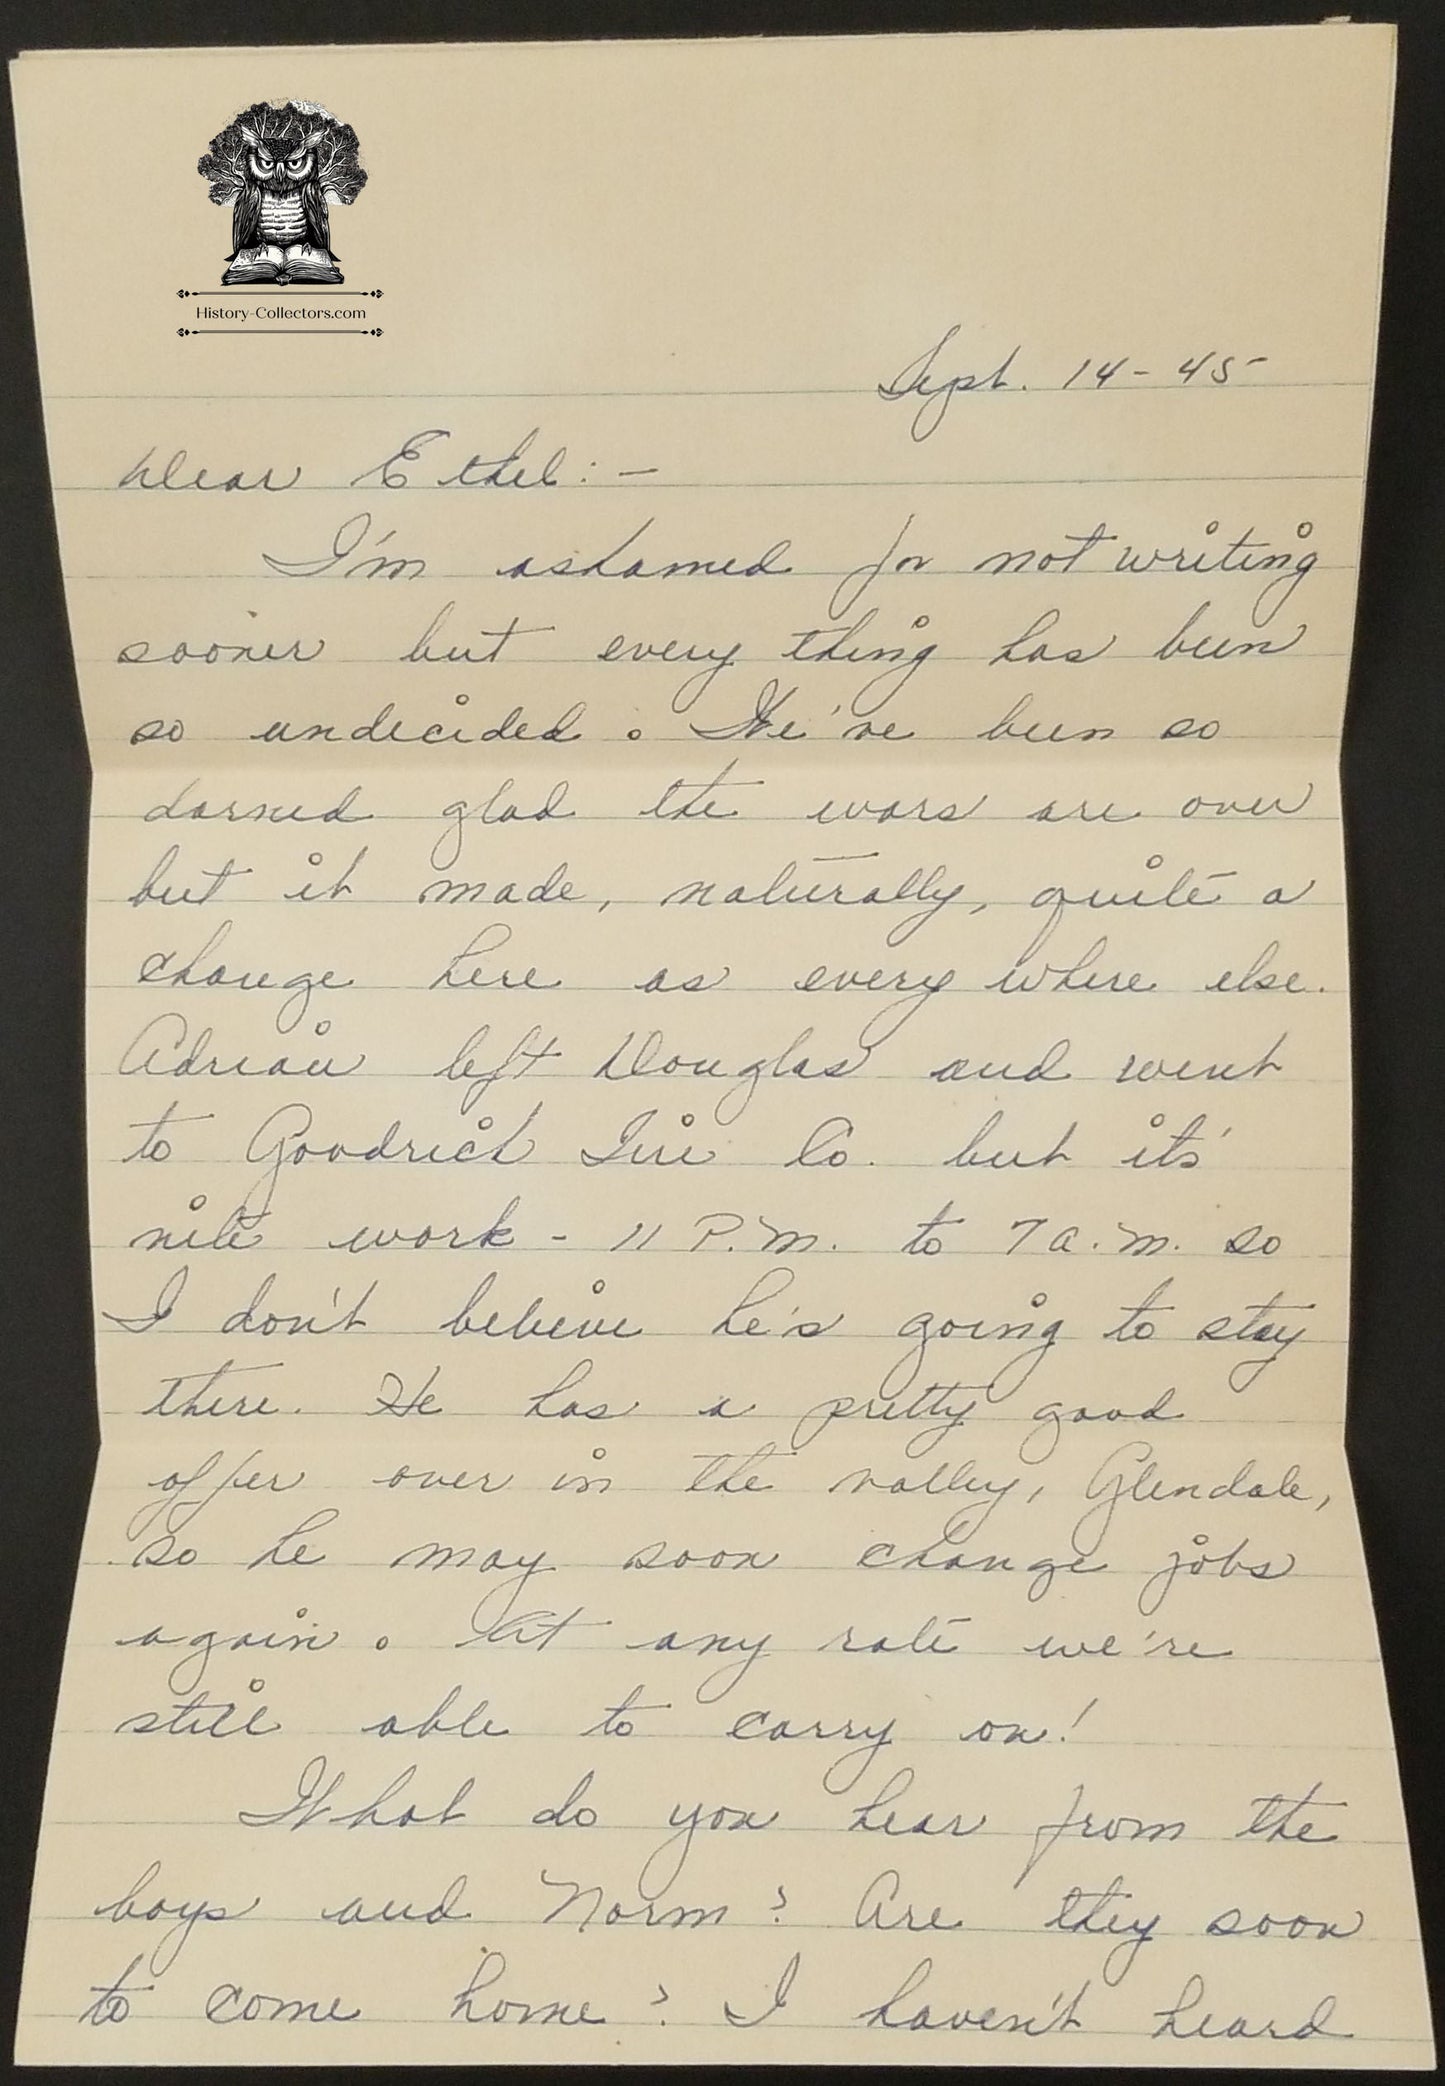 History-Collectors.com
Sept. 14-45
Dear Ethel:-
I'm ashamed for not writing
sooner but every thing has been
so undecided. We've been so
darned glad the wars are over
but it made, naturally, quite a
change here as every where else.
Adrian left Douglas and went
to Goodrich Tire Co. but it's
nite work - 11 P.M. to 7 A.M. so
I don't believe he's going to stay
there. He has a pretty good
offer over in the valley, Glendale,
so he may soon change jobs
again. At any rate we're
still able to carry on!
What do you hear from the
boys and Norm? Are they soon
to come home? I haven't heard